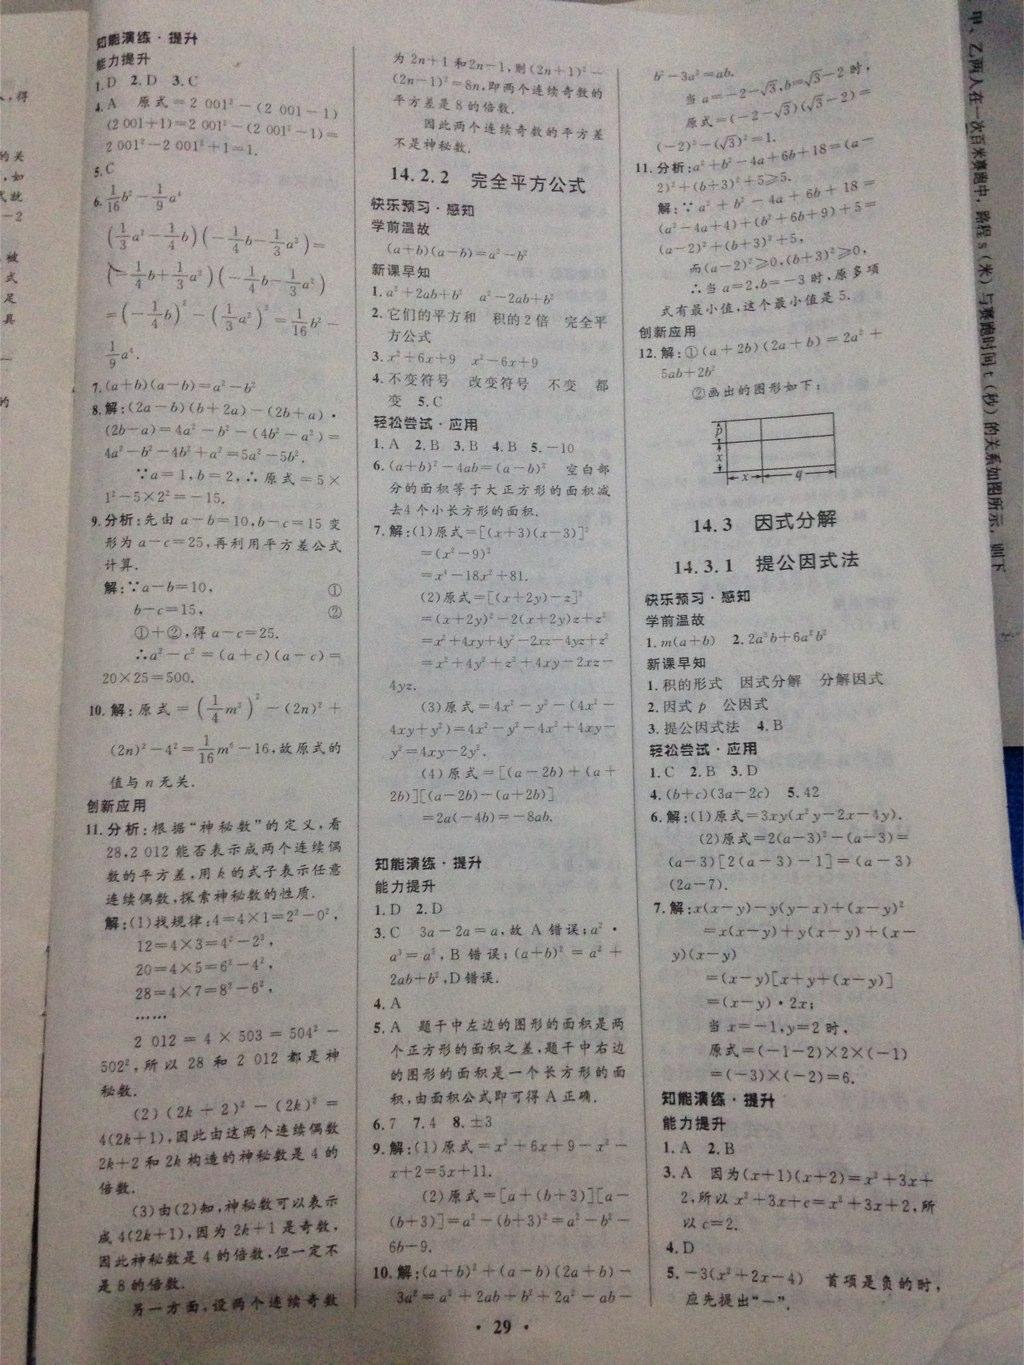 知能演练·提升
能力提升
1.D 2.D 3.C
4.A 原式=2 001²-(2 001-1)
(2 001+1)=2 001²-(2 001²-1)=
2 001²-2 001²+1=1.
5.C
6.1/16b²-1/9a⁴
(1/3a²-1/4b)(-1/4b-1/3a²)=
(-1/4b+1/3a²)(-1/4b-1/3a²)
=(-1/4b)²-(1/3a²)²=1/16b²-
1/9a⁴.
7.(a+b)(a-b)=a²-b²
8.解:(2a-b)(b+2a)-(2b+a)·
(2b-a)=4a²-b²-(4b²-a²)=
4a²-b²-4b²+a²=5a²-5b².
∵a=1,b=2,∴原式=5×
1²-5×2²=-15.
9.分析:先由a-b=10,b-c=15变
形为a-c=25,再利用平方差公式
计算.
解:∵a-b=10, ①
b-c=15, ②
①+②,得a-c=25.
∴a²-c²=(a+c)(a-c)=
20×25=500.
10.解:原式=(1/4m³)²-(2n)²+
(2n)²-4²=1/16m⁶-16,故原式的
值与n无关.
创新应用
11.分析:根据“神秘数”的定义,看
28,2 012能否表示成两个连续偶
数的平方差,用k的式子表示任意
连续偶数,探索神秘数的性质.
解:(1)找规律:4=4×1=2²-0²,
12=4×3=4²-2²,
20=4×5=6²-4²,
28=4×7=8²-6²,
……
2 012=4×503=504²-
502²,所以28和2 012都是神
秘数.
(2)(2k+2)²-(2k)²=
4(2k+1),因此由这两个连续偶数
2k+2和2k构造的神秘数是4的
倍数.
(3)由(2)知,神秘数可以表示
成4(2k+1),因为2k+1是奇数,
因此神秘数是4的倍数,但一定不
是8的倍数.
另一方面,设两个连续奇数
为2n+1和2n-1,则(2n+1)²-
(2n-1)²=8n,即两个连续奇数的
平方差是8的倍数.
因此两个连续奇数的平方差
不是神秘数.
14.2.2 完全平方公式
快乐预习·感知
学前温故
(a+b)(a-b)=a²-b²
新课早知
1.a²+2ab+b² a²-2ab+b²
2.它们的平方和 积的2倍 完全平
方公式
3.x²+6x+9 x²-6x+9
4.不变符号 改变符号 不变 都
变 5.C
轻松尝试·应用
1.A 2.B 3.B 4.B 5.-10
6.(a+b)²-4ab=(a-b)² 空白部
分的面积等于大正方形的面积减
去4个小长方形的面积.
7.解:(1)原式=[(x+3)(x-3)]²
=(x²-9)²
=x⁴-18x²+81.
(2)原式=[(x+2y)-z]²
=(x+2y)²-2(x+2y)z+z²
=x²+4xy+4y²-2xz-4yz+z²
=x²+4y²+z²+4xy-2xz-
4yz.
(3)原式=4x²-y²-(4x²-
4xy+y²)=4x²-y²-4x²+4xy-
y²=4xy-2y².
(4)原式=[(a-2b)+(a+
2b)][(a-2b)-(a+2b)]
=2a(-4b)=-8ab.
知能演练·提升
能力提升
1.D 2.D
3.C 3a-2a=a,故A错误;a²·
a³=a⁵,B错误;(a+b)²=a²+
2ab+b²,D错误.
4.A
5.A 题干中左边的图形的面积是两
个正方形的面积之差,题干中右边
的图形的面积是一个长方形的面
积,由面积公式即可得A正确.
6.7 7.4 8.±3
9.解:(1)原式=x²+6x+9-x²-
x+2=5x+11.
(2)原式=[a+(b+3)][a-
(b+3)]=a²-(b+3)²=a²-b²-
6b-9.
10.解:(a+b)²+(a-b)(2a+b)-
3a²=a²+2ab+b²+2a²-ab-
b²-3a²=ab.
当a=-2-√3,b=√3-2时,
原式=(-2-√3)(√3-2)=
(-2)²-(√3)²=1.
11.分析:a²+b²-4a+6b+18=(a-
2)²+(b+3)²+5≥5.
解:∵a²+b²-4a+6b+18=
(a²-4a+4)+(b²+6b+9)+5=
(a-2)²+(b+3)²+5,
而(a-2)²≥0,(b+3)²≥0,
∴当a=2,b=-3时,原多项
式有最小值,这个最小值是5.
创新应用
12.解:①(a+2b)(2a+b)=2a²+
5ab+2b²
②画出的图形如下:
p
x
x q
14.3 因式分解
14.3.1 提公因式法
快乐预习·感知
学前温故
1.m(a+b) 2.2a³b+6a²b²
新课早知
1.积的形式 因式分解 分解因式
2.因式p 公因式
3.提公因式法 4.B
轻松尝试·应用
1.C 2.B 3.D
4.(b+c)(3a-2c) 5.42
6.解:(1)原式=3xy(x²y-2x-4y).
(2)原式=2(a-3)²-(a-3)=
(a-3)[2(a-3)-1]=(a-3)
(2a-7).
7.解:x(x-y)-y(y-x)+(x-y)²
=x(x-y)+y(x-y)+(x-
y)(x-y)
=(x-y)[x+y+(x-y)]
=(x-y)·2x;
当x=-1,y=2时,
原式=(-1-2)×2×(-1)
=(-3)×(-2)=6.
知能演练·提升
能力提升
1.A 2.B
3.A 因为(x+1)(x+2)=x²+3x+
2,所以x²+3x+c=x²+3x+2,所
以c=2.
4.D
5.-3(x²+2x-4) 首项是负的时,
应先提出“-”.
·29·
甲、乙两人在一次百米赛跑中,路程s(米)与赛跑时间t(秒)的关系如图所示,则下